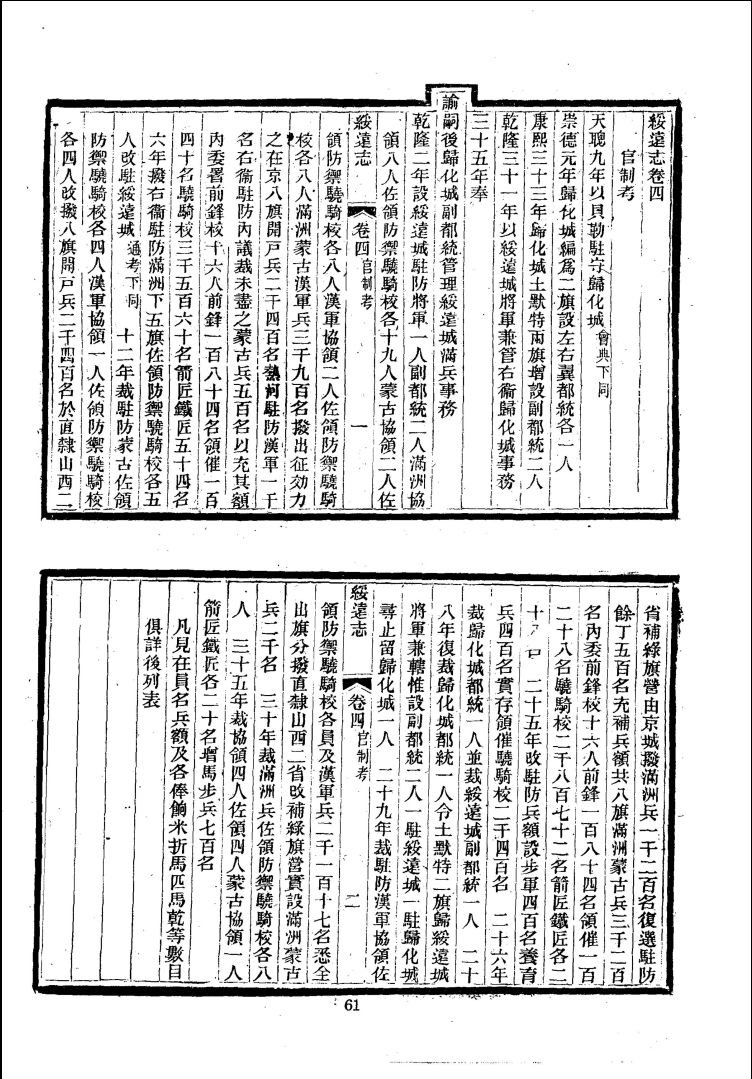 綏遠志卷四
官制考
天聰九年以貝勒駐守歸化城會典下同
崇德元年歸化城編爲二旗設左右翼都統各一人
康熙三十三年歸化城土默特兩旗增設副都統二人
乾隆三十一年以綏遠城將軍兼管右衞歸化城事務
三十五年奉
諭嗣後歸化城副都統管理綏遠城滿兵事務
乾隆二年設綏遠城駐防將軍一人副都統二人滿洲協
領八人佐領防禦驍騎校各十九人蒙古協領二人佐
綏遠志 卷四官制考 一
領防禦驍騎校各八人漢軍協領二人佐領防禦驍騎
校各八人滿洲蒙古漢軍兵三千九百名撥出征効力
之在京八旗開戸兵二千四百名熱河駐防漢軍一千
名右衞駐防內議裁未盡之蒙古兵五百名以充其額
內委署前鋒校十六人前鋒一百八十四名領催一百
四十名驍騎校三千五百六十名箭匠鐵匠五十四名
六年撥右衞駐防滿洲下五旗佐領防禦驍騎校各五
人改駐綏遠城通考下同 十二年裁駐防蒙古佐領
防禦驍騎校各四人漢軍協領一人佐領防禦驍騎校
各四人改撥八旗開戸兵二千四百名於直隸山西二
省補綠旗營由京城撥滿洲兵一千二百名復選駐防
餘丁五百名充補兵額共八旗滿洲蒙古兵三千二百
名內委前鋒校十六人前鋒一百八十四名領催一百
二十八名驍騎校二千八百七十二名箭匠鐵匠各二
十 二十五年改駐防兵額設步軍四百名養育
兵四百名實存領催驍騎校二千四百名 二十六年
裁歸化城都統一人並裁綏遠城副都統一人 二十
八年復裁歸化城都統一人令土默特二旗歸綏遠城
將軍兼轄惟設副都統二人一駐綏遠城一駐歸化城
尋止留歸化城一人 二十九年裁駐防漢軍協領佐
綏遠志 卷四官制考 二
領防禦驍騎校各員及漢軍兵二千一百十七名悉全
出旗分撥直隸山西二省改補綠旗營實設滿洲蒙古
兵二千名 三十年裁滿洲兵佐領防禦驍騎校各八
人 三十五年裁協領四人佐領四人蒙古協領一人
箭匠鐵匠各二十名增馬步兵七百名
凡見在員名兵額及各俸餉米折馬匹馬乾等數目
俱詳後列表
61